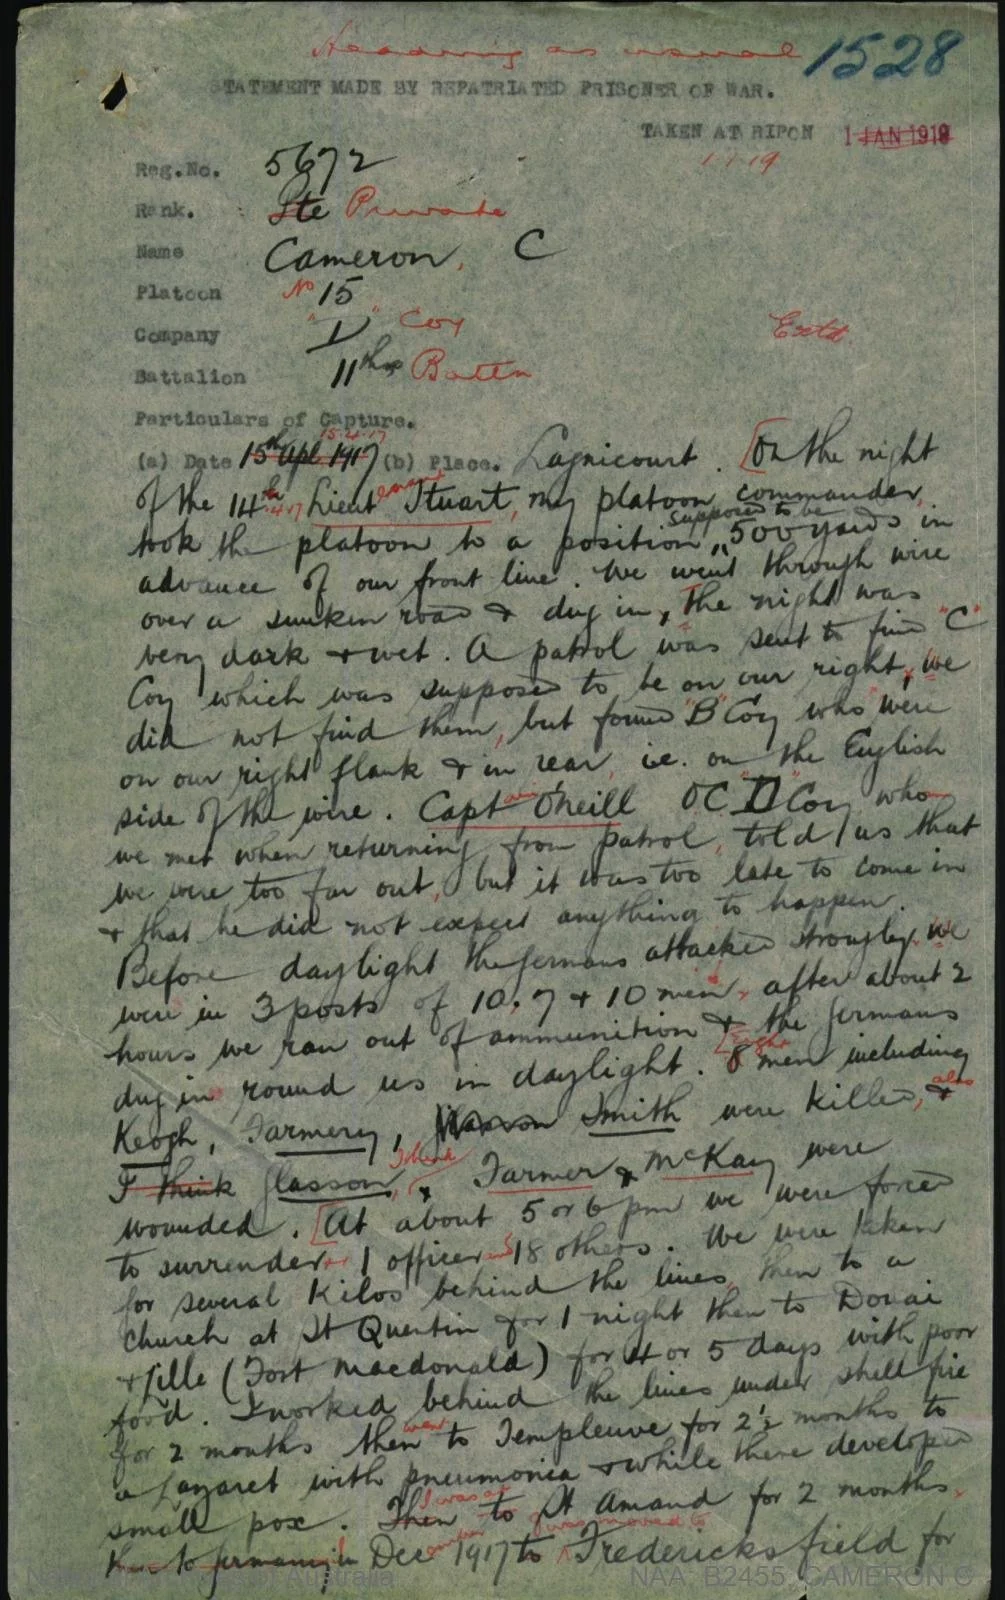 Heading as usual 1528
STATEMENT MADE BY REPATRIATED PRISONER OF WAR.
TAKEN AT RIPON 1 JAN 1919
1-1-19
Reg.No. 5672
Rank. Pte Private
Name Cameron, C
Platoon No 15
Company "D" Coy
Extd
Battalion 11th Battn
Particulars of Capture.
15.4.17
(a) Date 15th Apl 1917 (b) Place. Lagnicourt. [On the night
of the 14th .4.17 Lieut Stuart, my platoon commander,
supposed to be
took the platoon to a position 500 yards in
advance of our front line. We went through wire
over a sunken road & dug in, The night was
very dark & wet. A patrol was sent to find "C"
Coy which was supposed to be on our right, We
did not find them, but found "B" Coy who were
on our right flank & in rear, i.e. on the English
side of the wire. Captain O'Neill OC "D" Coy who
we met when returning from patrol, told us that
we were too far out, but it was too late to come in
& that he did not expect anything to happen.
Before daylight the Germans attacked strongly. We
were in 3 posts of 10, 7 & 10 men, after about 2
hours we ran out of ammunition & the Germans
[Eight
dug in round us in daylight. 8 men including
also
Keogh, Farmery, Smith were killed, &
I think
I think Glasson, & Farmer & McKay were
wounded. [At about 5 or 6 pm we were forced
to surrender 1 officer and 18 others. We were taken
for several kilos behind the lines, then to a
church at St Quentin for 1 night then to Douai
& Lille (Fort Macdonald) for 4 or 5 days with poor
food. I worked behind the lines under shell fire
went
for 2 months then to Templeuve for 2½ months to
a Lazaret with pneumonia & while there developed
I was
small pox. Then to St Amand for 2 months.
I was moved to
then to Germany in December 1917 to Fredericksfield for
National Archives of Australia NAA: B2455, CAMERON C